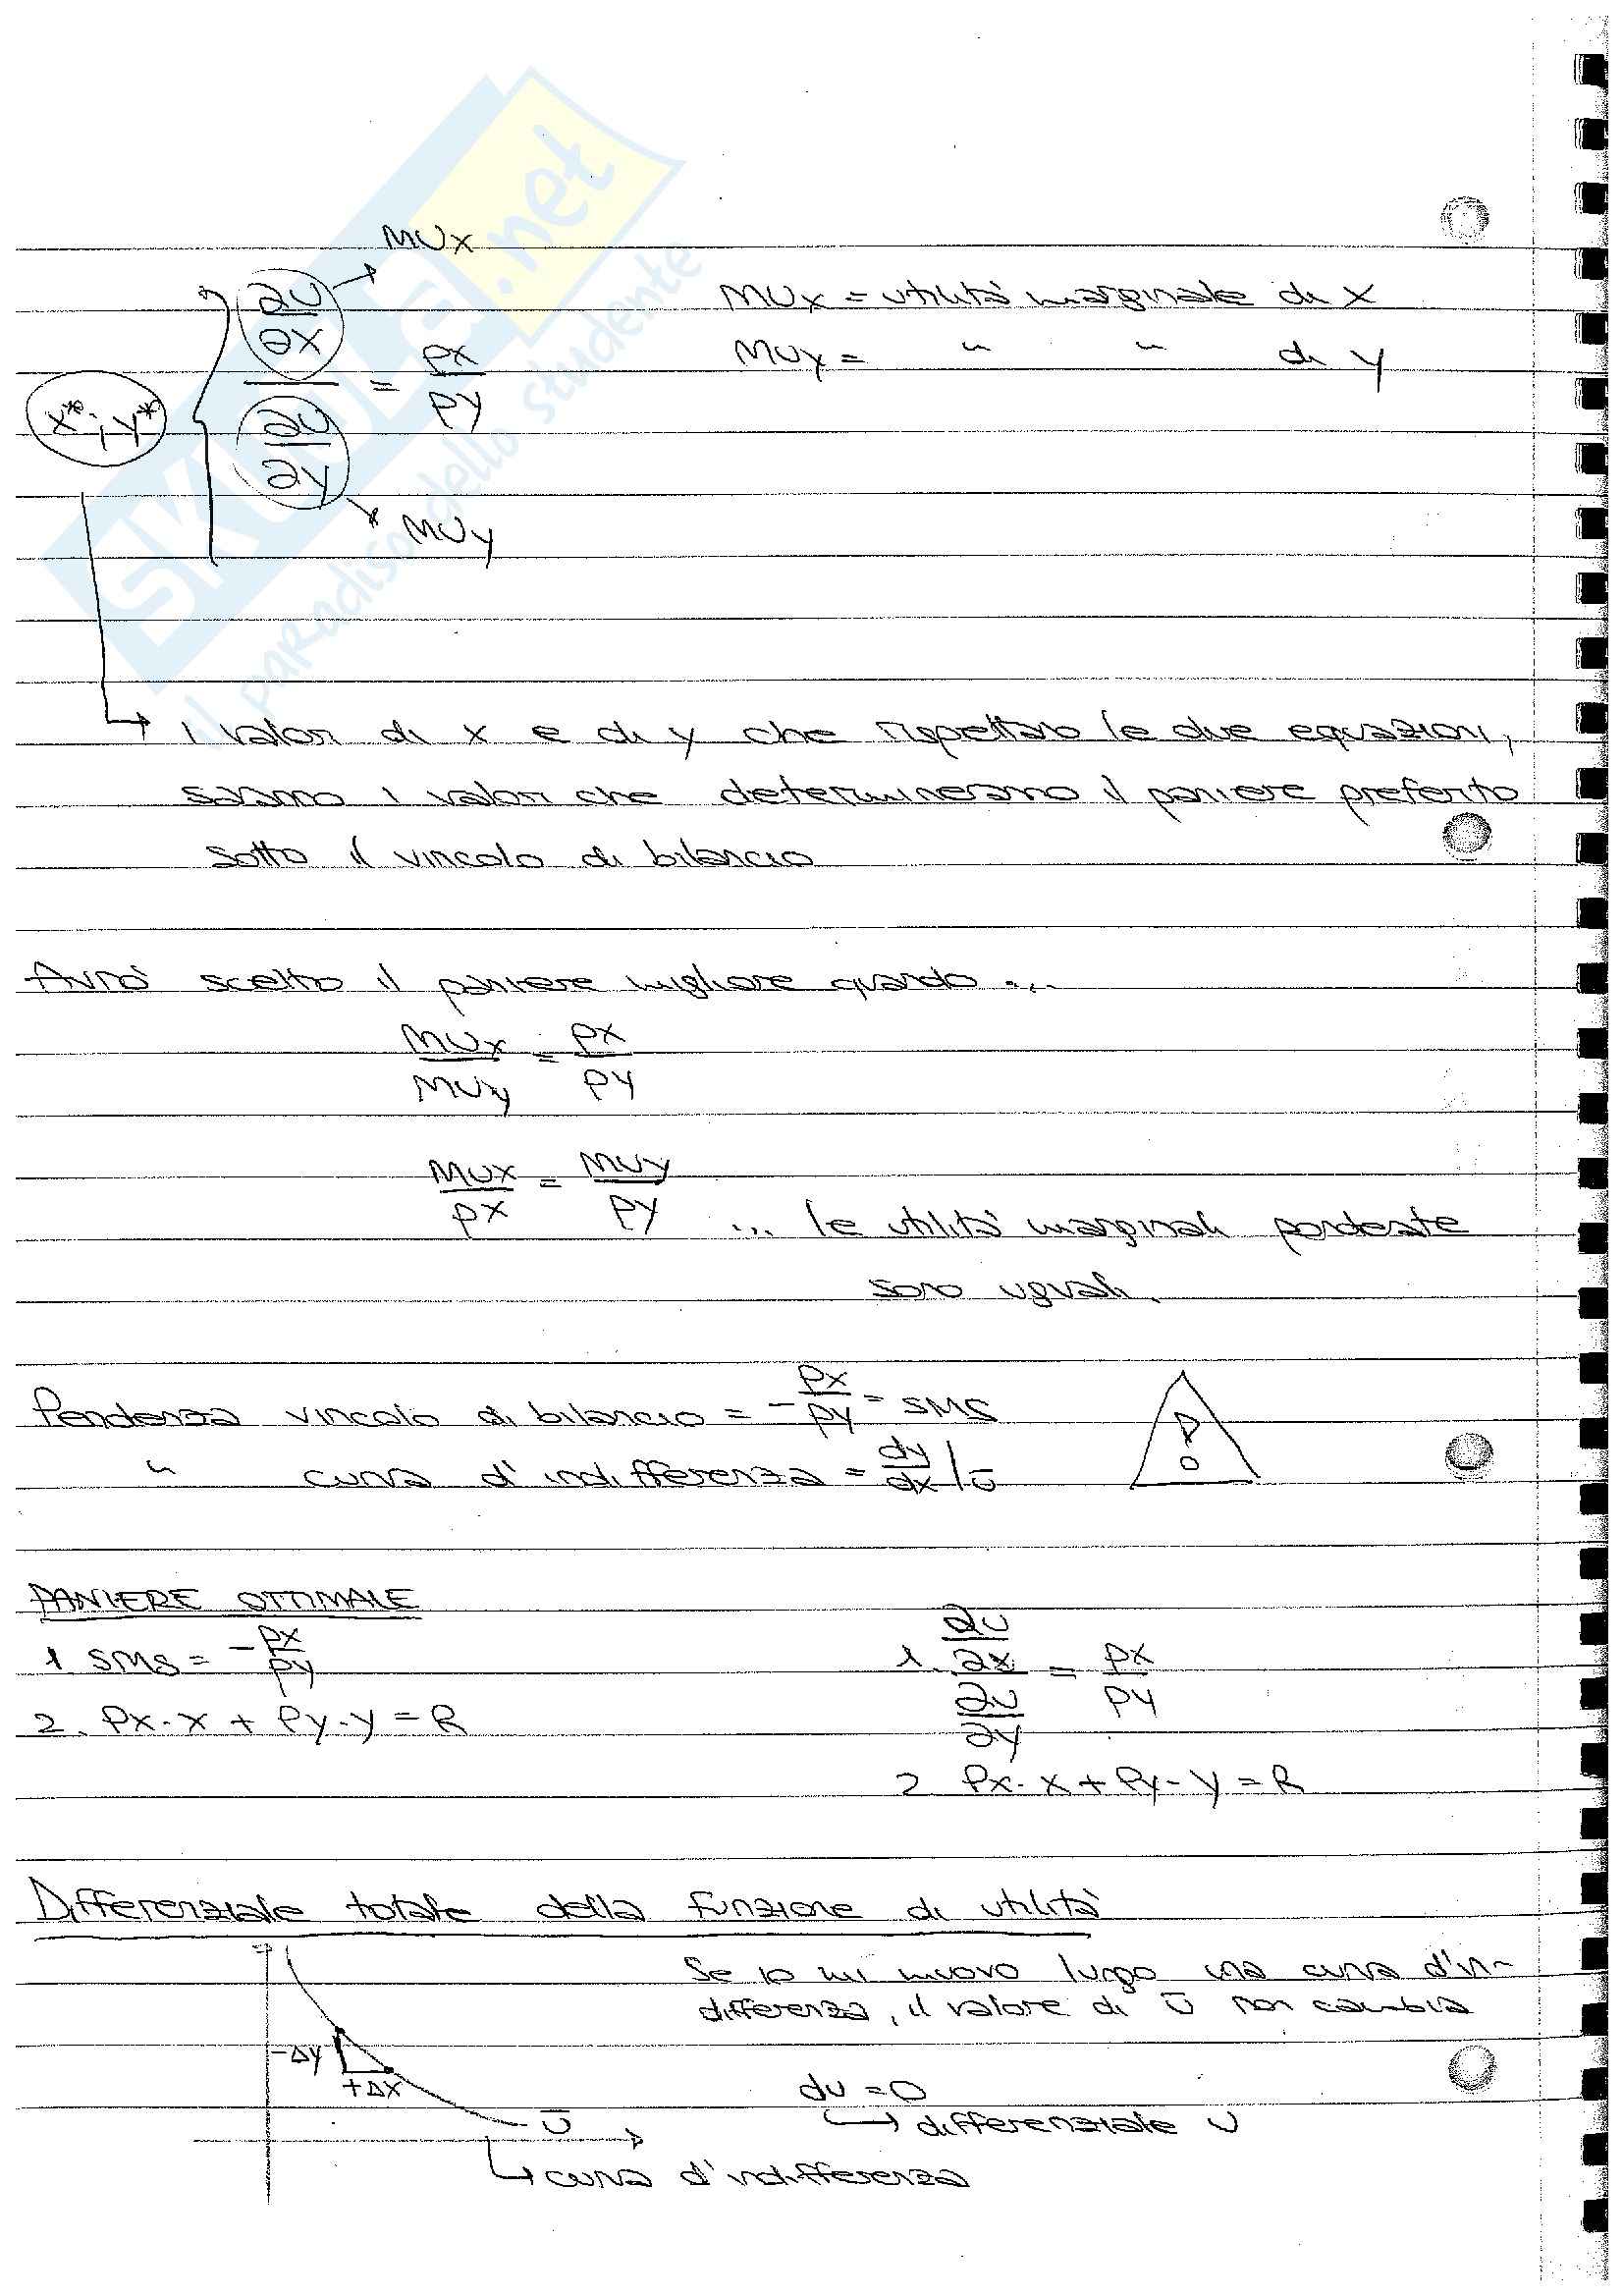 MUx
∂U/∂x / ∂U/∂y = px/py
MUx = utilità marginale di x
MUy = " " di y
x*; y*
MUy
i valori di x e di y che rispettano le due equazioni,
saranno i valori che determineranno il paniere preferito
sotto il vincolo di bilancio
Avrò scelto il paniere migliore quando ...
MUx/MUy = px/py
MUx/px = MUy/py ... le utilità marginali ponderate
sono uguali.
Pendenza vincolo di bilancio = -px/py = SMS
" curva d'indifferenza = dy/dx|ū
PANIERE OTTIMALE
1. SMS = -px/py
2. Px·x + Py·y = R
1. ∂U/∂x / ∂U/∂y = px/py
2 Px·x + Py·y = R
Differenziale totale della funzione di utilità
Se io mi muovo lungo una curva d'in-
differenza, il valore di ū non cambia
-Δy
+Δx
ū
du = 0
differenziale U
curva d'indifferenza
SKUOLA.net
il paradiso dello studente